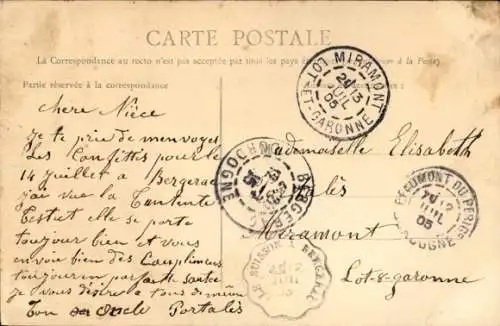 CARTE POSTALE
La Correspondance au recto n'est pas acceptée par tous les pays
à la Poste)
Partie réservée à la correspondance
Chere Nièce
je te prie de menvoyer
Les Confettis pour le
14 juillet a Bergerac
j'ai vue la
elle se porte
toujour bien et vous
envoie bien des Complimens
toujour en parfaite santé
je vous désire a tous de même
Ton Oncle Portalès
Mademoiselle Elisabeth
Miramont
Lot-&-garonne
MIRAMONT
LOT-ET-GARONNE
20 13
JUIL
05
BERGERAC
DORDOGNE
BEAUMONT DU PERIGD
DORDOGNE
JUIL
05
LE BUISSON
BERGERAC
JUIL
05